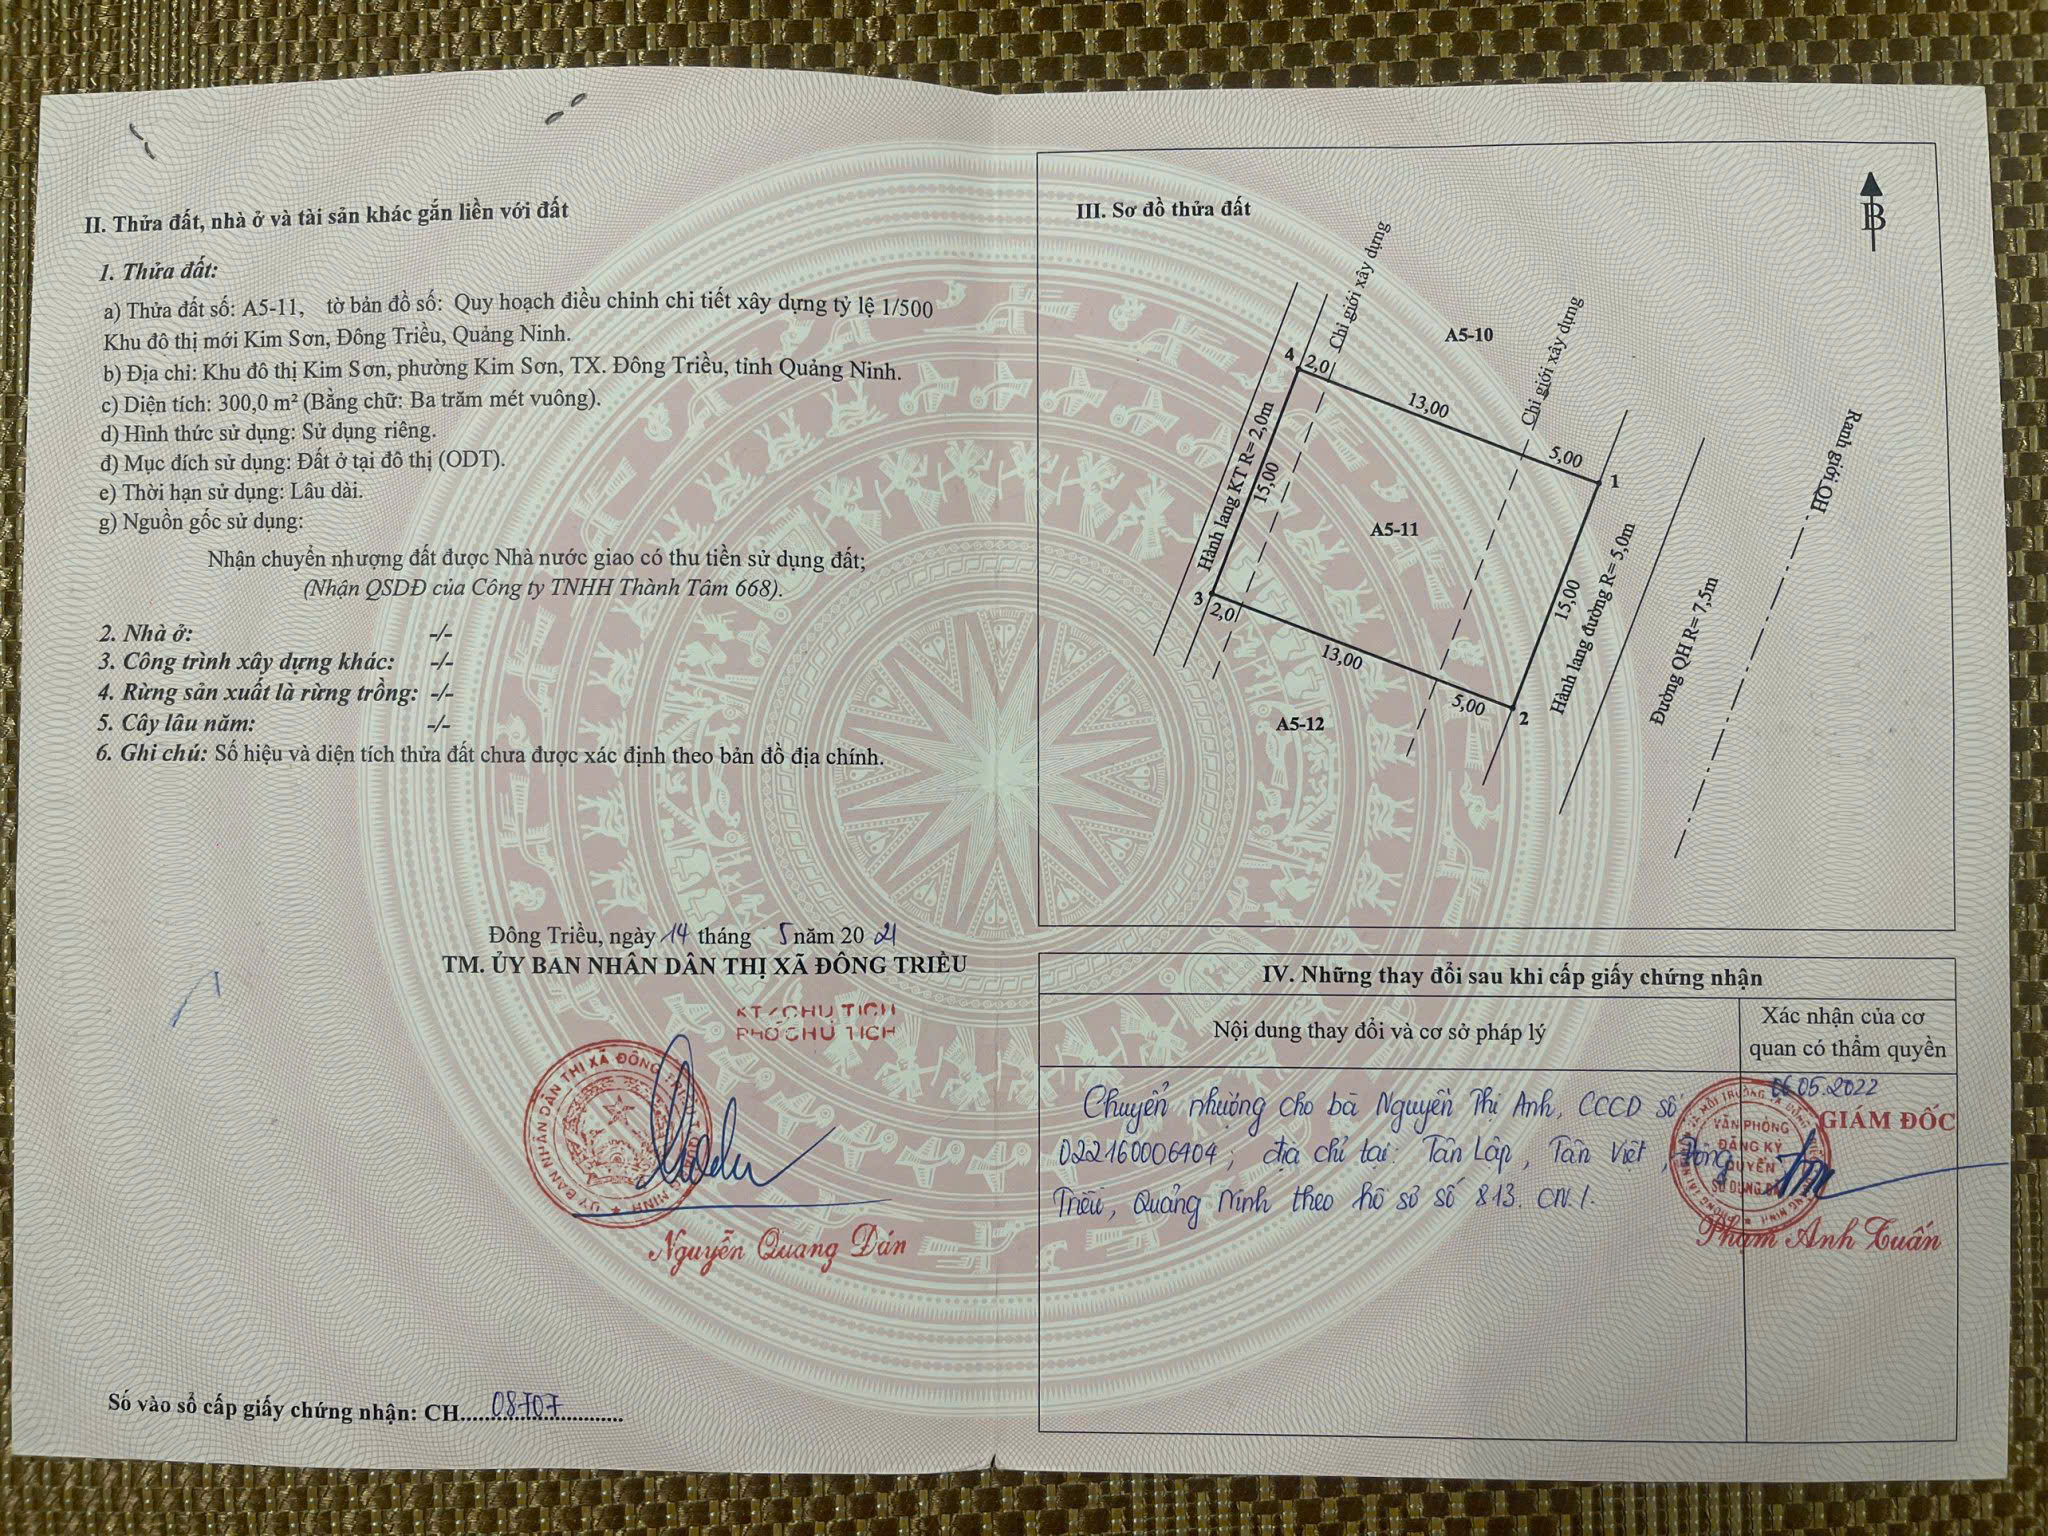 II. Thửa đất, nhà ở và tài sản khác gắn liền với đất
1. Thửa đất:
a) Thửa đất số: A5-11, tờ bản đồ số: Quy hoạch điều chỉnh chi tiết xây dựng tỷ lệ 1/500
Khu đô thị mới Kim Sơn, Đông Triều, Quảng Ninh.
b) Địa chỉ: Khu đô thị Kim Sơn, phường Kim Sơn, TX. Đông Triều, tỉnh Quảng Ninh.
c) Diện tích: 300,0 m² (Bằng chữ: Ba trăm mét vuông).
d) Hình thức sử dụng: Sử dụng riêng.
đ) Mục đích sử dụng: Đất ở tại đô thị (ODT).
e) Thời hạn sử dụng: Lâu dài.
g) Nguồn gốc sử dụng:
Nhận chuyển nhượng đất được Nhà nước giao có thu tiền sử dụng đất;
(Nhận QSDĐ của Công ty TNHH Thành Tâm 668).
2. Nhà ở: -/-
3. Công trình xây dựng khác: -/-
4. Rừng sản xuất là rừng trồng: -/-
5. Cây lâu năm: -/-
6. Ghi chú: Số hiệu và diện tích thửa đất chưa được xác định theo bản đồ địa chính.
Đông Triều, ngày 14 tháng 5 năm 2021
TM. ỦY BAN NHÂN DÂN THỊ XÃ ĐÔNG TRIỀU
KT/CHỦ TỊCH
PHÓ CHỦ TỊCH
ỦY BAN NHÂN DÂN THỊ XÃ ĐÔNG
NINH
Nguyễn Quang Dán
Số vào sổ cấp giấy chứng nhận: CH.....08707..........
III. Sơ đồ thửa đất
B
Chỉ giới xây dựng
Chỉ giới xây dựng
A5-10
4
2,0
13,00
5,00
1
Hành lang KT R= 2,0m
15,00
A5-11
15,00
Hành lang đường R= 5,0m
Đường QH R= 7,5m
Ranh giới QH
3
2,0
13,00
5,00
2
A5-12
IV. Những thay đổi sau khi cấp giấy chứng nhận
Nội dung thay đổi và cơ sở pháp lý
Xác nhận của cơ
quan có thẩm quyền
Chuyển nhượng cho bà Nguyễn Thị Anh, CCCD số
022160006404; địa chỉ tại: Tân Lập, Tân Việt, Đông
Triều, Quảng Ninh theo hồ sơ số 813. CN./.
06.05.2022
GIÁM ĐỐC
VĂN PHÒNG
ĐĂNG KÝ
QUYỀN
SỬ DỤNG ĐẤT
Phạm Anh Tuấn